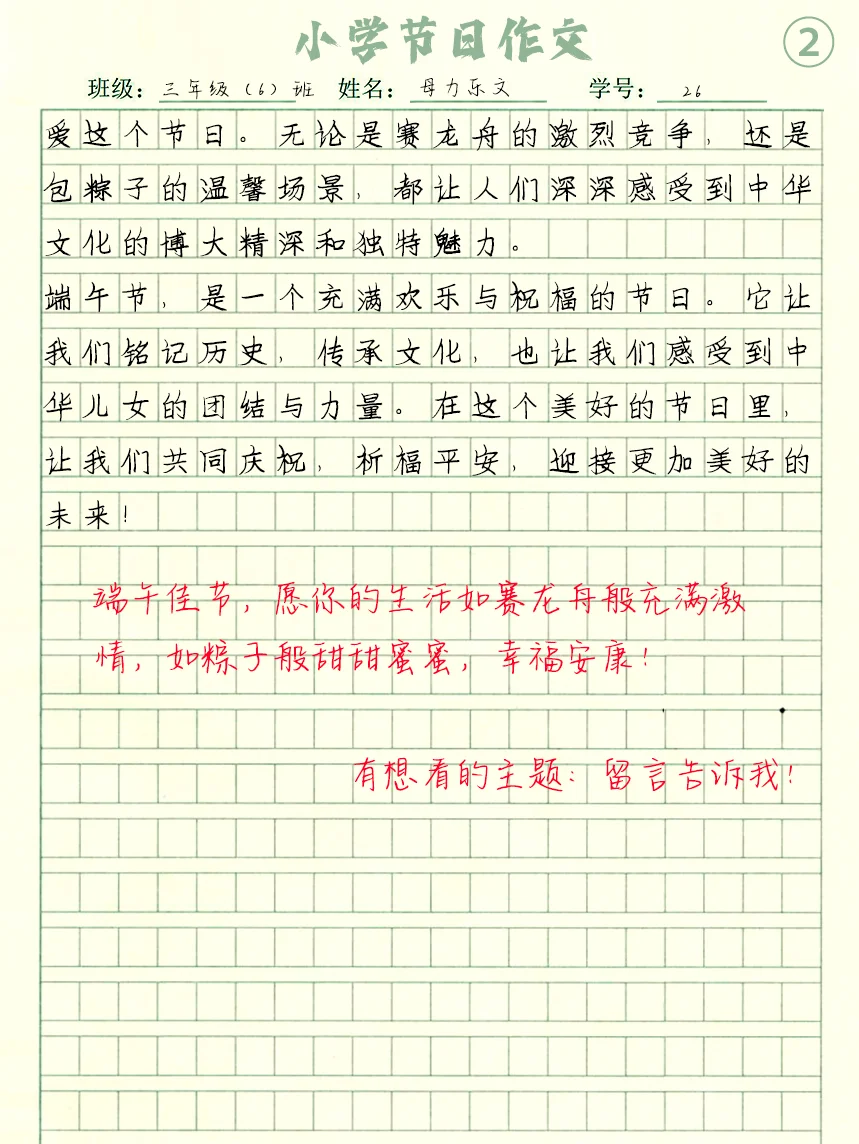 小学节日作文
②
班级：三年级（6）班 姓名：母力乐文 学号：26
爱这个节日。无论是赛龙舟的激烈竞争，还是
包粽子的温馨场景，都让人们深深感受到中华
文化的博大精深和独特魅力。
端午节，是一个充满欢乐与祝福的节日。它让
我们铭记历史，传承文化，也让我们感受到中
华儿女的团结与力量。在这个美好的节日里，
让我们共同庆祝，祈福平安，迎接更加美好的
未来！
端午佳节，愿你的生活如赛龙舟般充满激
情，如粽子般甜甜蜜蜜，幸福安康！
有想看的主题：留言告诉我！